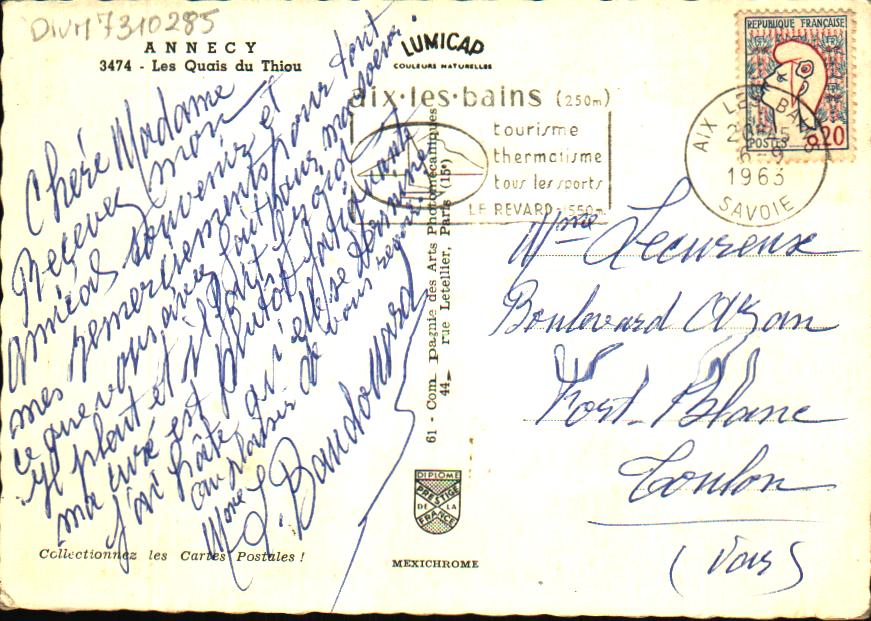 DIVM7310285
ANNECY
3474 - Les Quais du Thiou
LUMICAP
COULEURS NATURELLES
aix·les·bains (250m)
tourisme
thermalisme
tous les sports
LE REVARD - 1550m
REPUBLIQUE FRANÇAISE
POSTES 0,20
AIX LES BAINS
6-9
1963
SAVOIE
Chère Madame
Recevez mon
amical souvenir et
mes remerciements pour tout
ce que vous avez fait pour ma soeur.
Il pleut et il fait froid
ma cure est plutôt fatigante
j'ai hâte qu'elle se termine
au plaisir de vous revoir
Mme G. Baudouard
61 - Compagnie des Arts Photomécaniques
44, rue Letellier, Paris (15e)
Mme Lecureux
Boulevard
Fort-Blanc
Toulon
(Var)
DIPLOME
PRESTIGE
DE LA
FRANCE
Collectionnez les Cartes Postales !
MEXICHROME